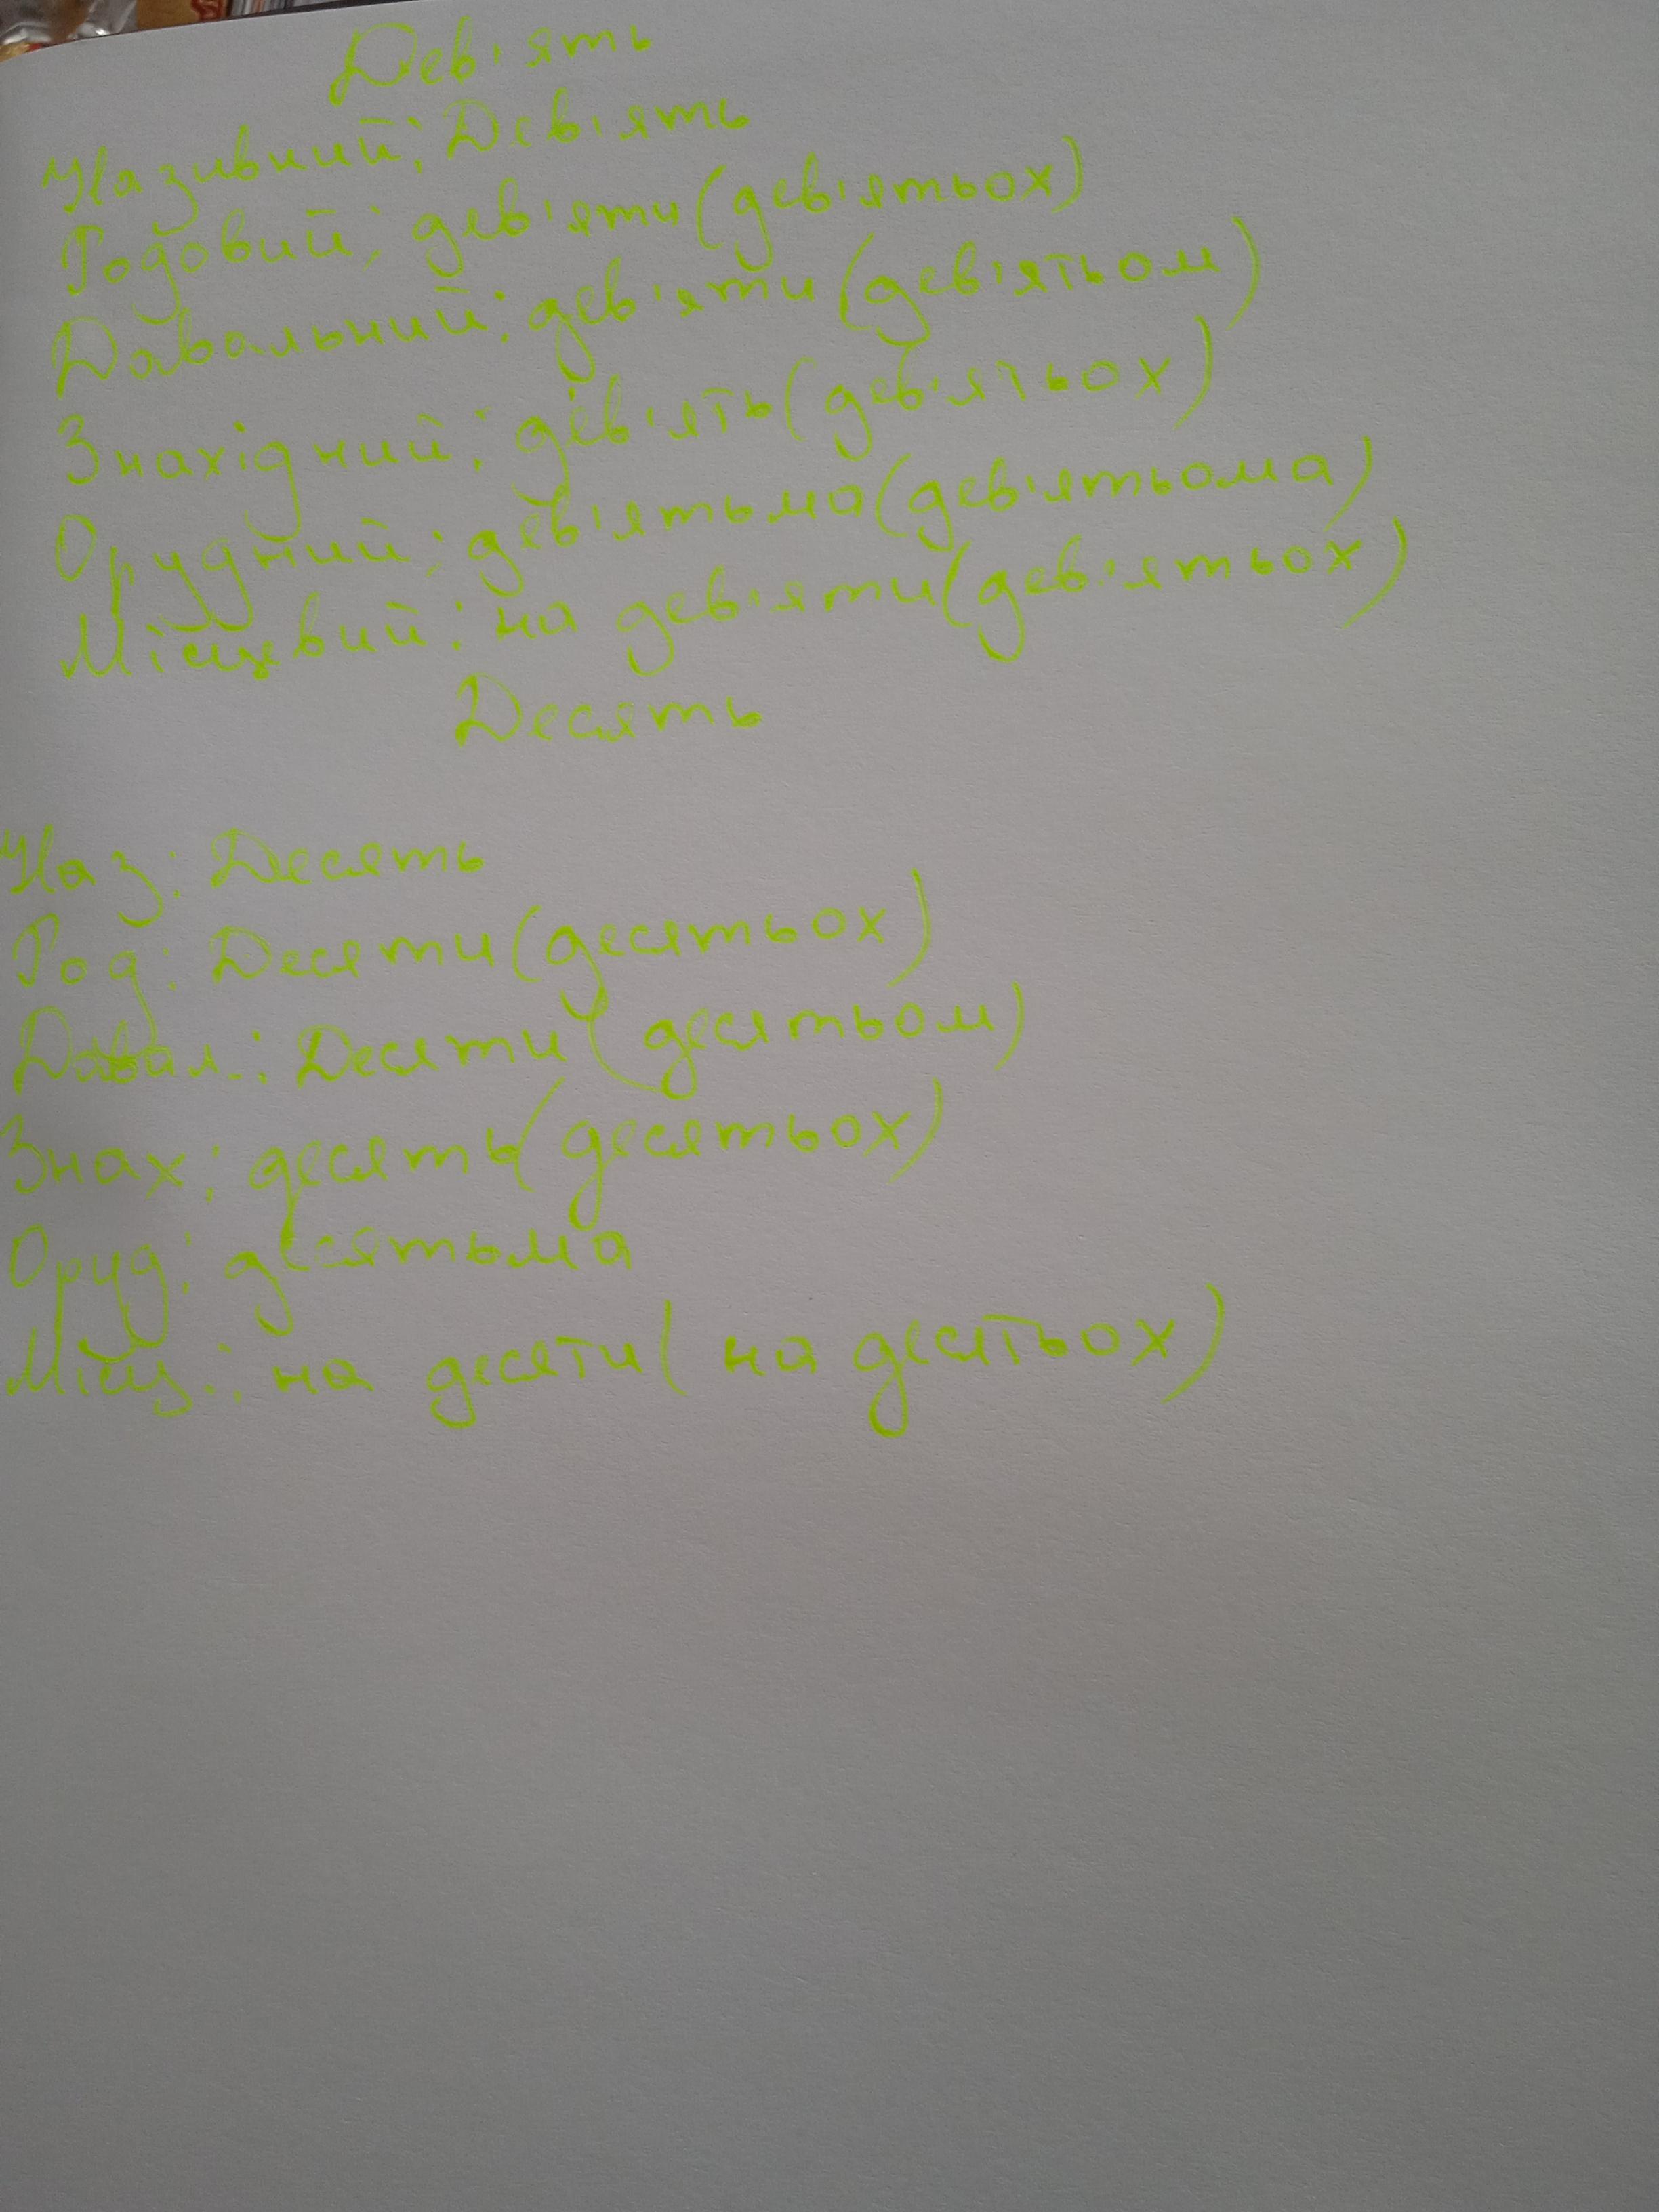 Дев'ять
Називний: Дев'ять
Родовий: дев'яти(дев'ятьох)
Давальний: дев'яти(дев'ятьом)
Знахідний: дев'ять(дев'ятьох)
Орудний: дев'ятьма(дев'ятьома)
Місцевий: на дев'яти(дев'ятьох)
Десять
Наз: Десять
Род: Десяти(десятьох)
Давал.: Десяти(десятьом)
Знах: десять(десятьох)
Оруд: десятьма
Місц.: на десяти(на десятьох)